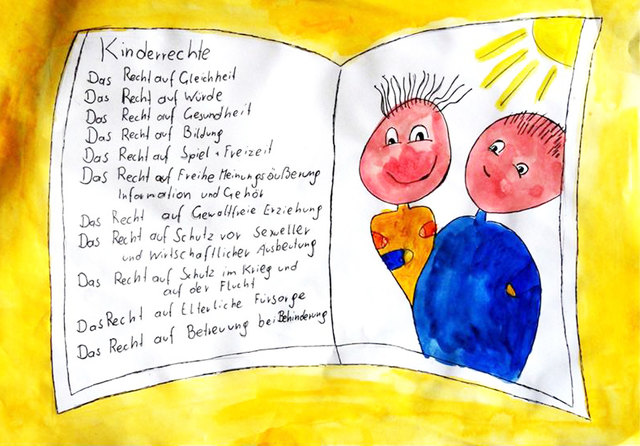 Kinderrechte
Das Recht auf Gleichheit
Das Recht auf Würde
Das Recht auf Gesundheit
Das Recht auf Bildung
Das Recht auf Spiel + Freizeit
Das Recht auf Freihe Meinungsäußerung
Information und Gehör
Das Recht auf Gewaltfreie Erziehung
Das Recht auf Schutz vor Sexeller
und Wirtschaftlicher Ausbeutung
Das Recht auf Schutz im Krieg und
auf der Flucht
Das Recht auf Elterliche Fürsorge
Das Recht auf Betreuung bei Behinderung